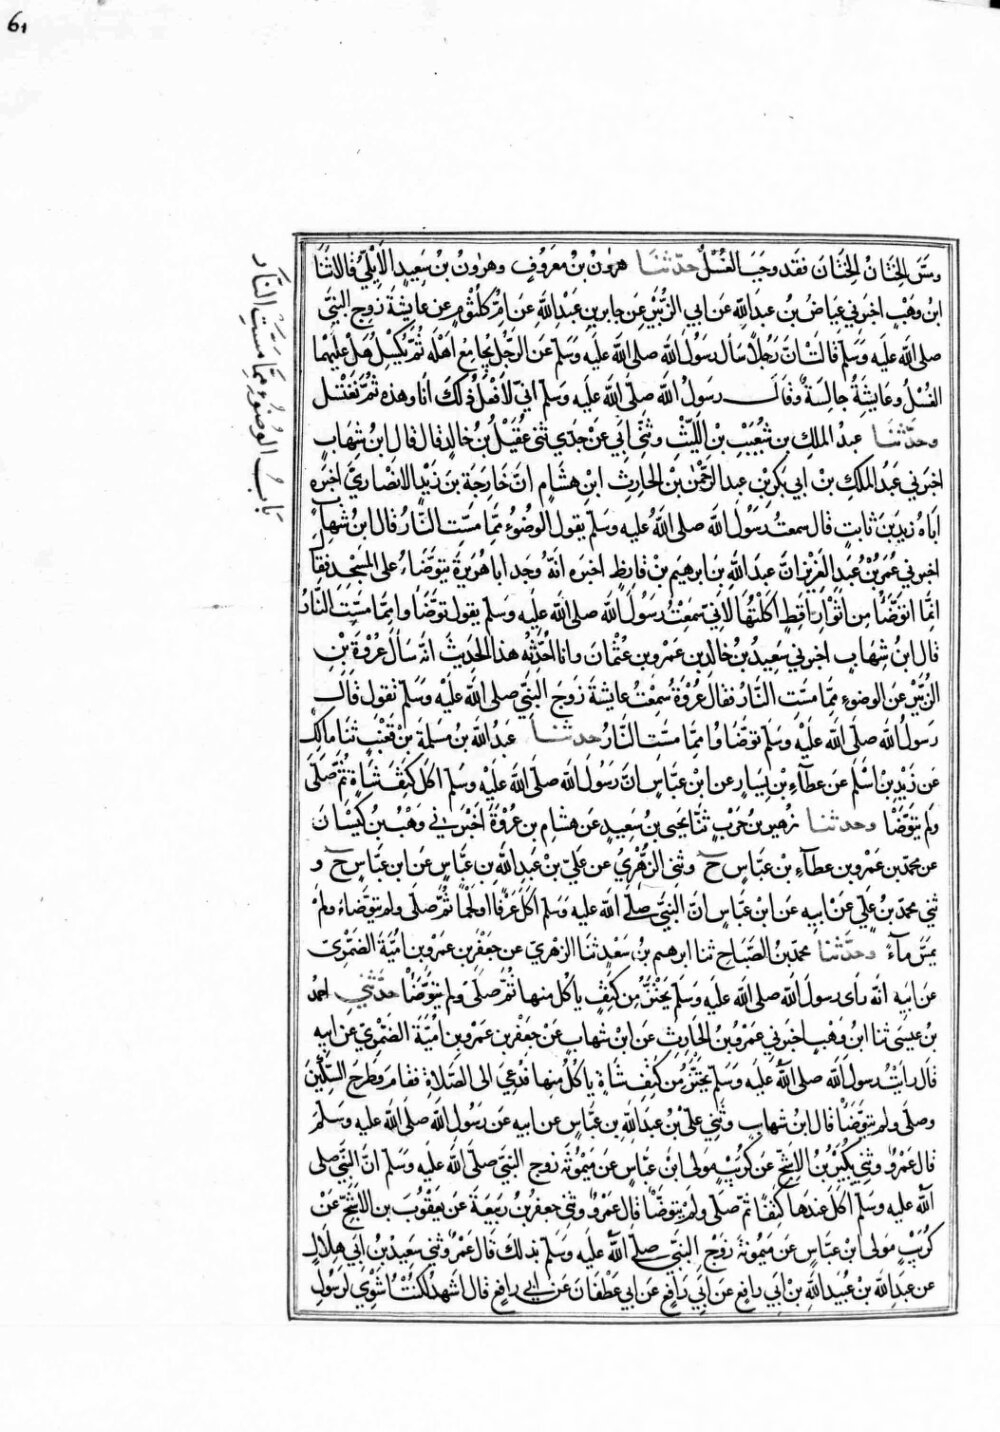 61
باب الوضوء مما مست النار
ومس الختان الختان فقد وجب الغسل حدثنا هرون بن معروف وهرون بن سعيد الأيلي قالا ثنا
ابن وهب اخبرني عياض بن عبد الله عن ابي الزبير عن جابر بن عبد الله عن ام كلثوم عن عايشة زوج النبي
صلى الله عليه وسلم قالت ان رجلا سأل رسول الله صلى الله عليه وسلم عن الرجل يجامع اهله ثم يكسل هل عليهما
الغسل وعايشة جالسة وقال رسول الله صلى الله عليه وسلم اني لافعل ذلك انا وهذه ثم نغتسل
وحدثنا عبد الملك بن شعيب بن الليث وثني ابي عن جدي ثني عقيل بن خالد قال قال ابن شهاب
اخبرني عبد الملك بن ابي بكر بن عبد الرحمن بن الحارث ابن هشام ان خارجة بن زيد الانصاري اخبره
اباه زيد بن ثابت قال سمعت رسول الله صلى الله عليه وسلم يقول الوضوء مما مست النار قال ابن شهاب
اخبرني عمر بن عبد العزيز ان عبد الله بن ابرهيم بن قارظ اخبره انه وجد ابا هريرة يتوضاء على المسجد فقا
انما اتوضا من اثوار اقط اكلتها لاني سمعت رسول الله صلى الله عليه وسلم يقول توضاوا مما مست النار
قال ابن شهاب اخبرني سعيد بن خالد بن عمرو بن عثمان وانا احدثه هذا الحديث انه سأل عروة بن
الزبير عن الوضوء مما مست النار فقال عروة سمعت عايشة زوج النبي صلى الله عليه وسلم تقول قال
رسول الله صلى الله عليه وسلم توضاوا مما مست النار حدثنا عبد الله بن مسلمة بن قعنب ثنا مالك
عن زيد بن اسلم عن عطاء بن يسار عن ابن عباس ان رسول الله صلى الله عليه وسلم اكل كتف شاة ثم صلى
ولم يتوضا وحدثنا زهير بن حرب ثنا يحيى بن سعيد عن هشام بن عروة اخبرني وهب بن كيسان
عن محمد بن عمرو بن عطاء بن عباس ح وثني الزهري عن علي بن عبد الله بن عباس عن ابن عباس ح و
ثني محمد بن علي عن ابيه عن ابن عباس ان النبي صلى الله عليه وسلم اكل عرقا او لحما ثم صلى ولم يتوضاء ولم
يمس ماء وحدثنا محمد بن الصباح ثنا ابرهيم بن سعد ثنا الزهري عن جعفر بن عمرو بن امية الضمري
عن ابيه انه رأى رسول الله صلى الله عليه وسلم يحتز من كتف ياكل منها ثم صلى ولم يتوضا حدثني احمد
بن عيسى ثنا ابن وهب اخبرني عمرو بن الحارث عن ابن شهاب عن جعفر بن عمرو بن امية الضمري عن ابيه
قال رايت رسول الله صلى الله عليه وسلم يحتز من كتف شاة ياكل منها فدعي الى الصلاة فقام وطرح السكين
وصلى ولم يتوضا قال ابن شهاب وثني علي بن عبد الله بن عباس عن ابيه عن رسول الله صلى الله عليه وسلم
قال عمرو وثني بكير بن الاشج عن كريب مولى ابن عباس عن ميمونة زوج النبي صلى الله عليه وسلم ان النبي صلى
الله عليه وسلم اكل عندها كتفا ثم صلى ولم يتوضا قال عمرو وثني جعفر بن ربيعة عن يعقوب بن الاشج عن
كريب مولى ابن عباس عن ميمونة زوج النبي صلى الله عليه وسلم بذلك قال عمرو ثني سعيد بن ابي هلال
عن عبد الله بن عبيد الله بن ابي رافع عن ابي رافع عن ابي غطفان عن ابي رافع قال اشهد لكنت اشوي لرسول